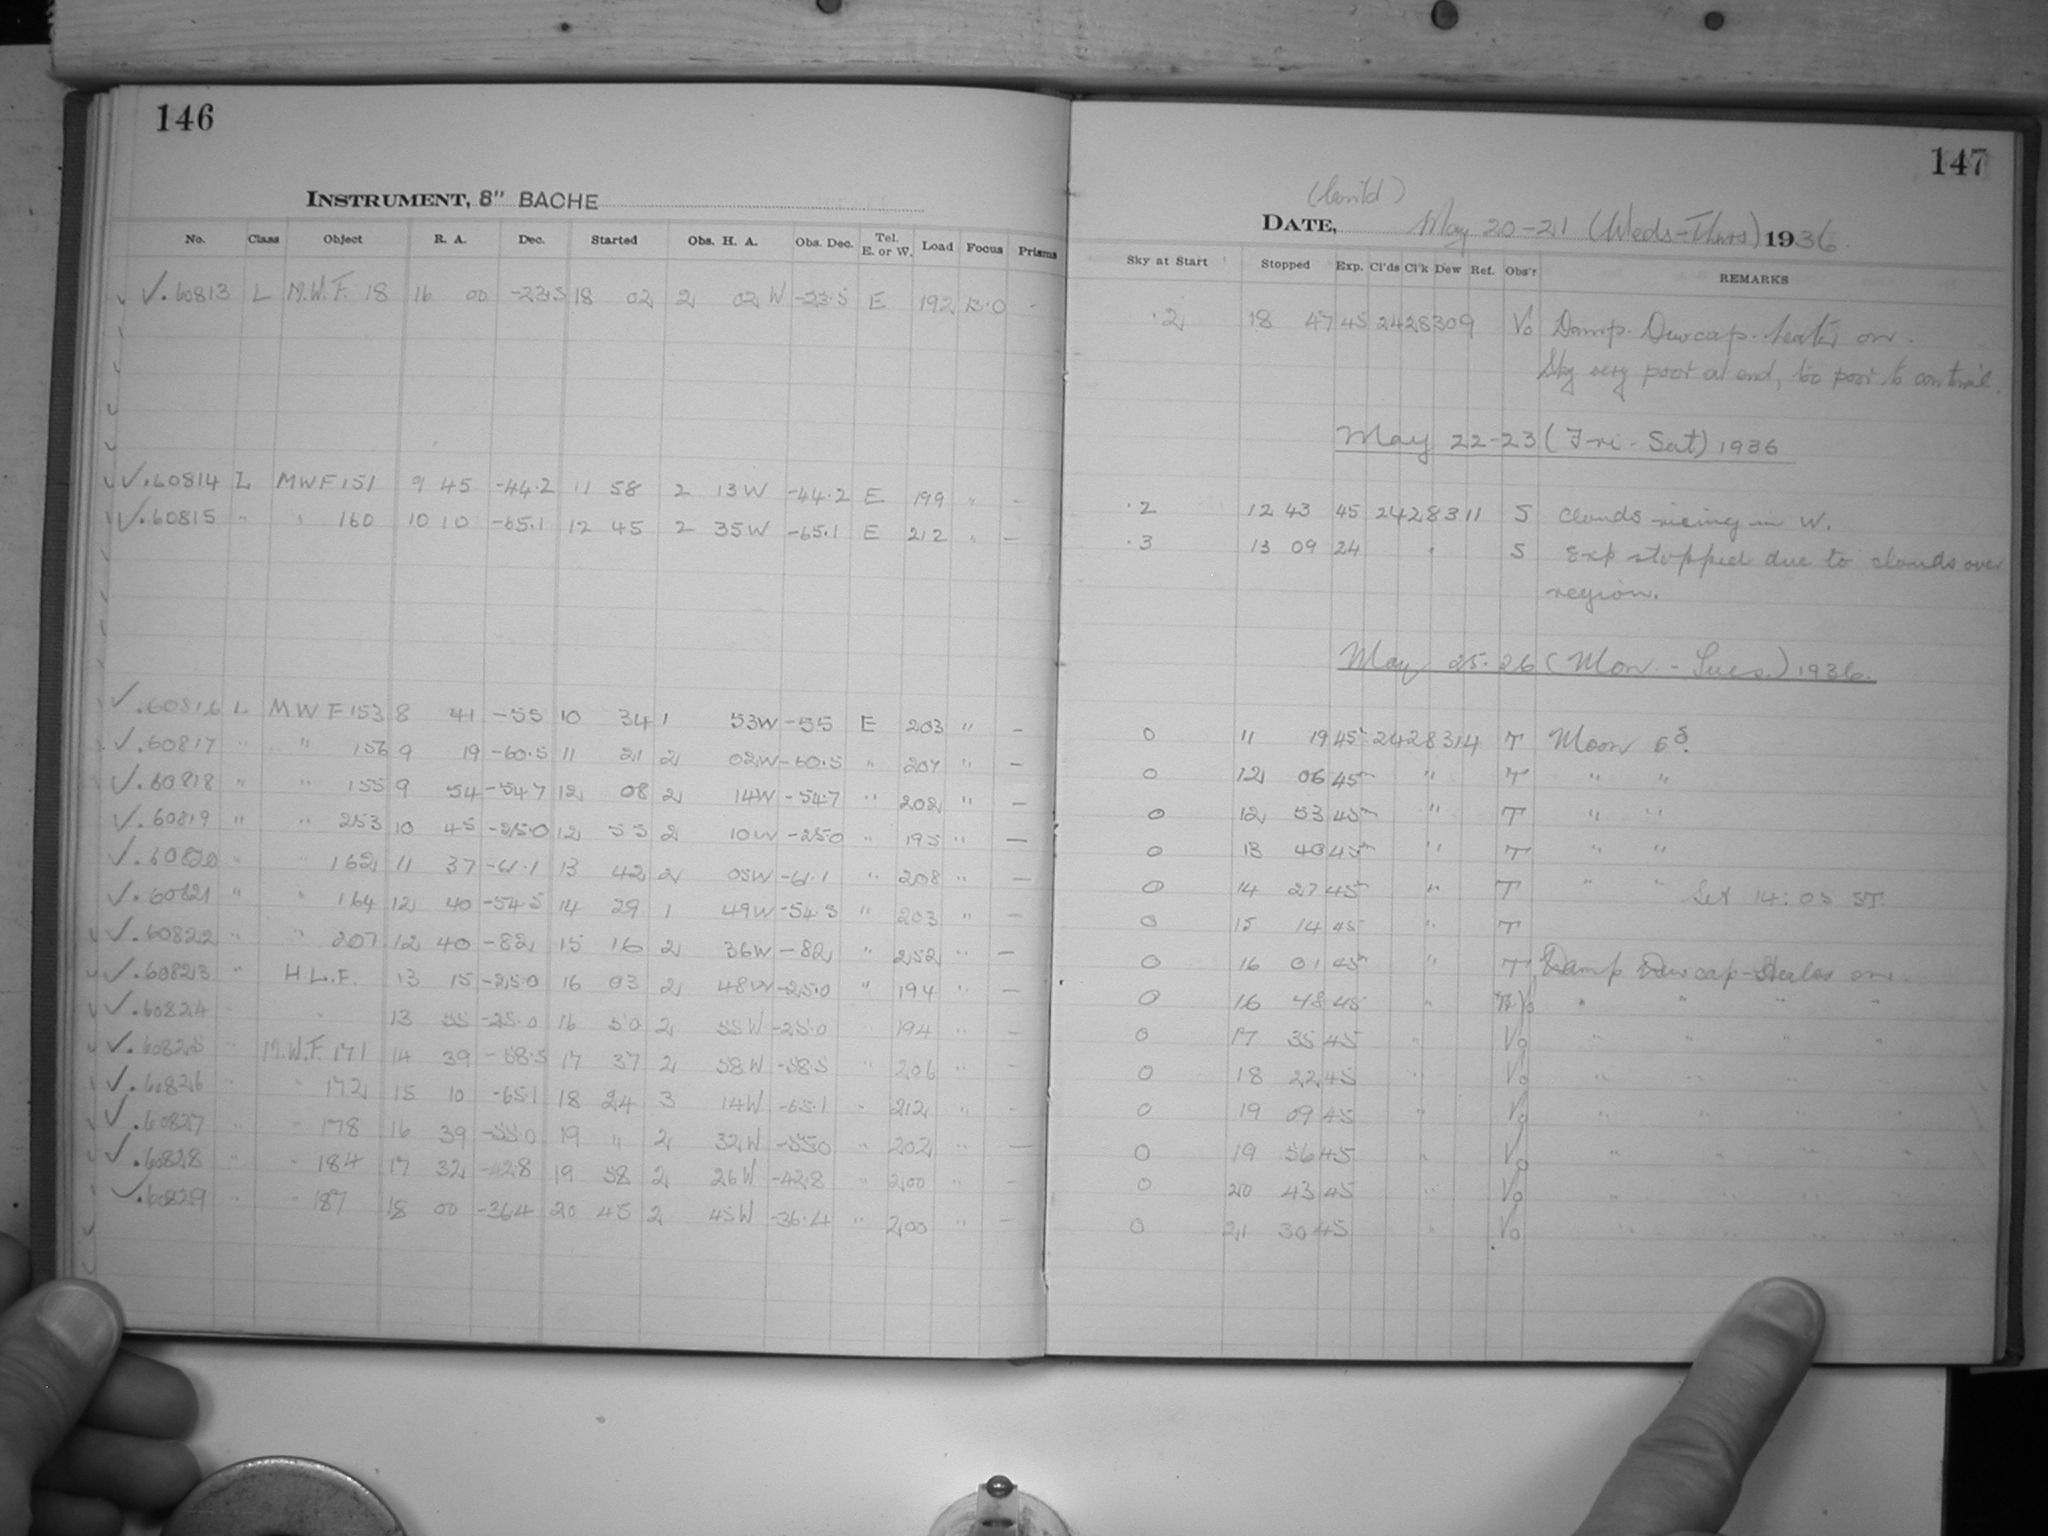 146
INSTRUMENT, 8" BACHE
No. Class Object R. A. Dec. Started Obs. H. A. Obs. Dec. Tel. E. or W. Load Focus Prisms
✓.60813 L M.W.F. 18 16 00 -23.5 18 02 2 02 W -23.5 E 192 13.0 -
✓.60814 L MWF 151 9 45 -44.2 11 58 2 13W -44.2 E 199 " -
✓.60815 " " 160 10 10 -65.1 12 45 2 35W -65.1 E 212 " -
✓.60816 L MWF 153 8 41 -55 10 34 1 53W -55 E 203 " -
✓.60817 " " 156 9 19 -60.5 11 21 2 02W -60.5 " 207 " -
✓.60818 " " 155 9 54 -54.7 12 08 2 14W -54.7 " 202 " -
✓.60819 " " 253 10 45 -25.0 12 55 2 10W -25.0 " 195 " -
✓.60820 " " 162 11 37 -61.1 13 42 2 05W -61.1 " 208 " -
✓.60821 " " 164 12 40 -54.5 14 29 1 49W -54.5 " 203 " -
✓.60822 " " 207 12 40 -82 15 16 2 36W -82 " 252 " -
✓.60823 " H.L.F. 13 15 -25.0 16 03 2 48W -25.0 " 194 " -
✓.60824 " " 13 55 -25.0 16 50 2 55W -25.0 " 194 " -
✓.60825 " M.W.F. 171 14 39 -58.5 17 37 2 58W -58.5 " 206 " -
✓.60826 " " 172 15 10 -65.1 18 24 3 14W -65.1 " 212 " -
✓.60827 " " 178 16 39 -55.0 19 11 2 32W -55.0 " 202 " -
✓.60828 " " 184 17 32 -42.8 19 58 2 26W -42.8 " 200 " -
✓.60829 " " 187 18 00 -36.4 20 45 2 45W -36.4 " 200 " -
147
(Cont'd)
DATE, May 20-21 (Weds-Thurs) 1936.
Sky at Start Stopped Exp. Cl'ds Cl'k Dew Ref. Obs'r REMARKS
.2 18 47 45 2428309 Vo Damp. Dewcap-heater on.
Sky very poor at end, too poor to continue.
May 22-23 (Fri-Sat) 1936
.2 12 43 45 2428311 S Clouds rising in W.
.3 13 09 24 " S Exp stopped due to clouds over
region.
May 25-26 (Mon.-Tues.) 1936.
0 11 19 45 2428314 T Moon 5d.
0 12 06 45 " T " "
0 12 53 45 " T " "
0 13 40 45 " T " "
0 14 27 45 " T " " Set 14:05 ST.
0 15 14 45 " T
0 16 01 45 " T Damp Dewcap-Heater on.
0 16 48 45 " " " " "
0 17 35 45 " Vo " " " "
0 18 22 45 " Vo " " " "
0 19 09 45 " Vo " " " "
0 19 56 45 " Vo " " " "
0 20 43 45 " Vo " " " "
0 21 30 45 " Vo " " " "